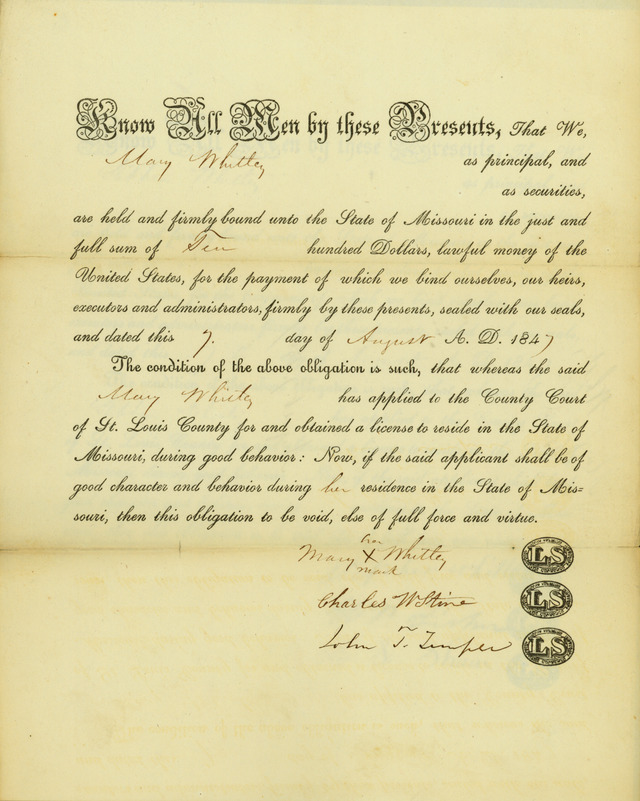 Know All Men by these Presents, That We,
Mary Whitley as principal, and
as securities,
are held and firmly bound unto the State of Missouri in the just and
full sum of Ten hundred Dollars, lawful money of the
United States, for the payment of which we bind ourselves, our heirs,
executors and administrators, firmly by these presents, sealed with our seals,
and dated this 7. day of August A. D. 1847
The condition of the above obligation is such, that whereas the said
Mary Whitley has applied to the County Court
of St. Louis County for and obtained a license to reside in the State of
Missouri, during good behavior: Now, if the said applicant shall be of
good character and behavior during her residence in the State of Mis=
souri, then this obligation to be void, else of full force and virtue.
her
Mary X Whitley LS
mark
Charles W Stine LS
John T. LS